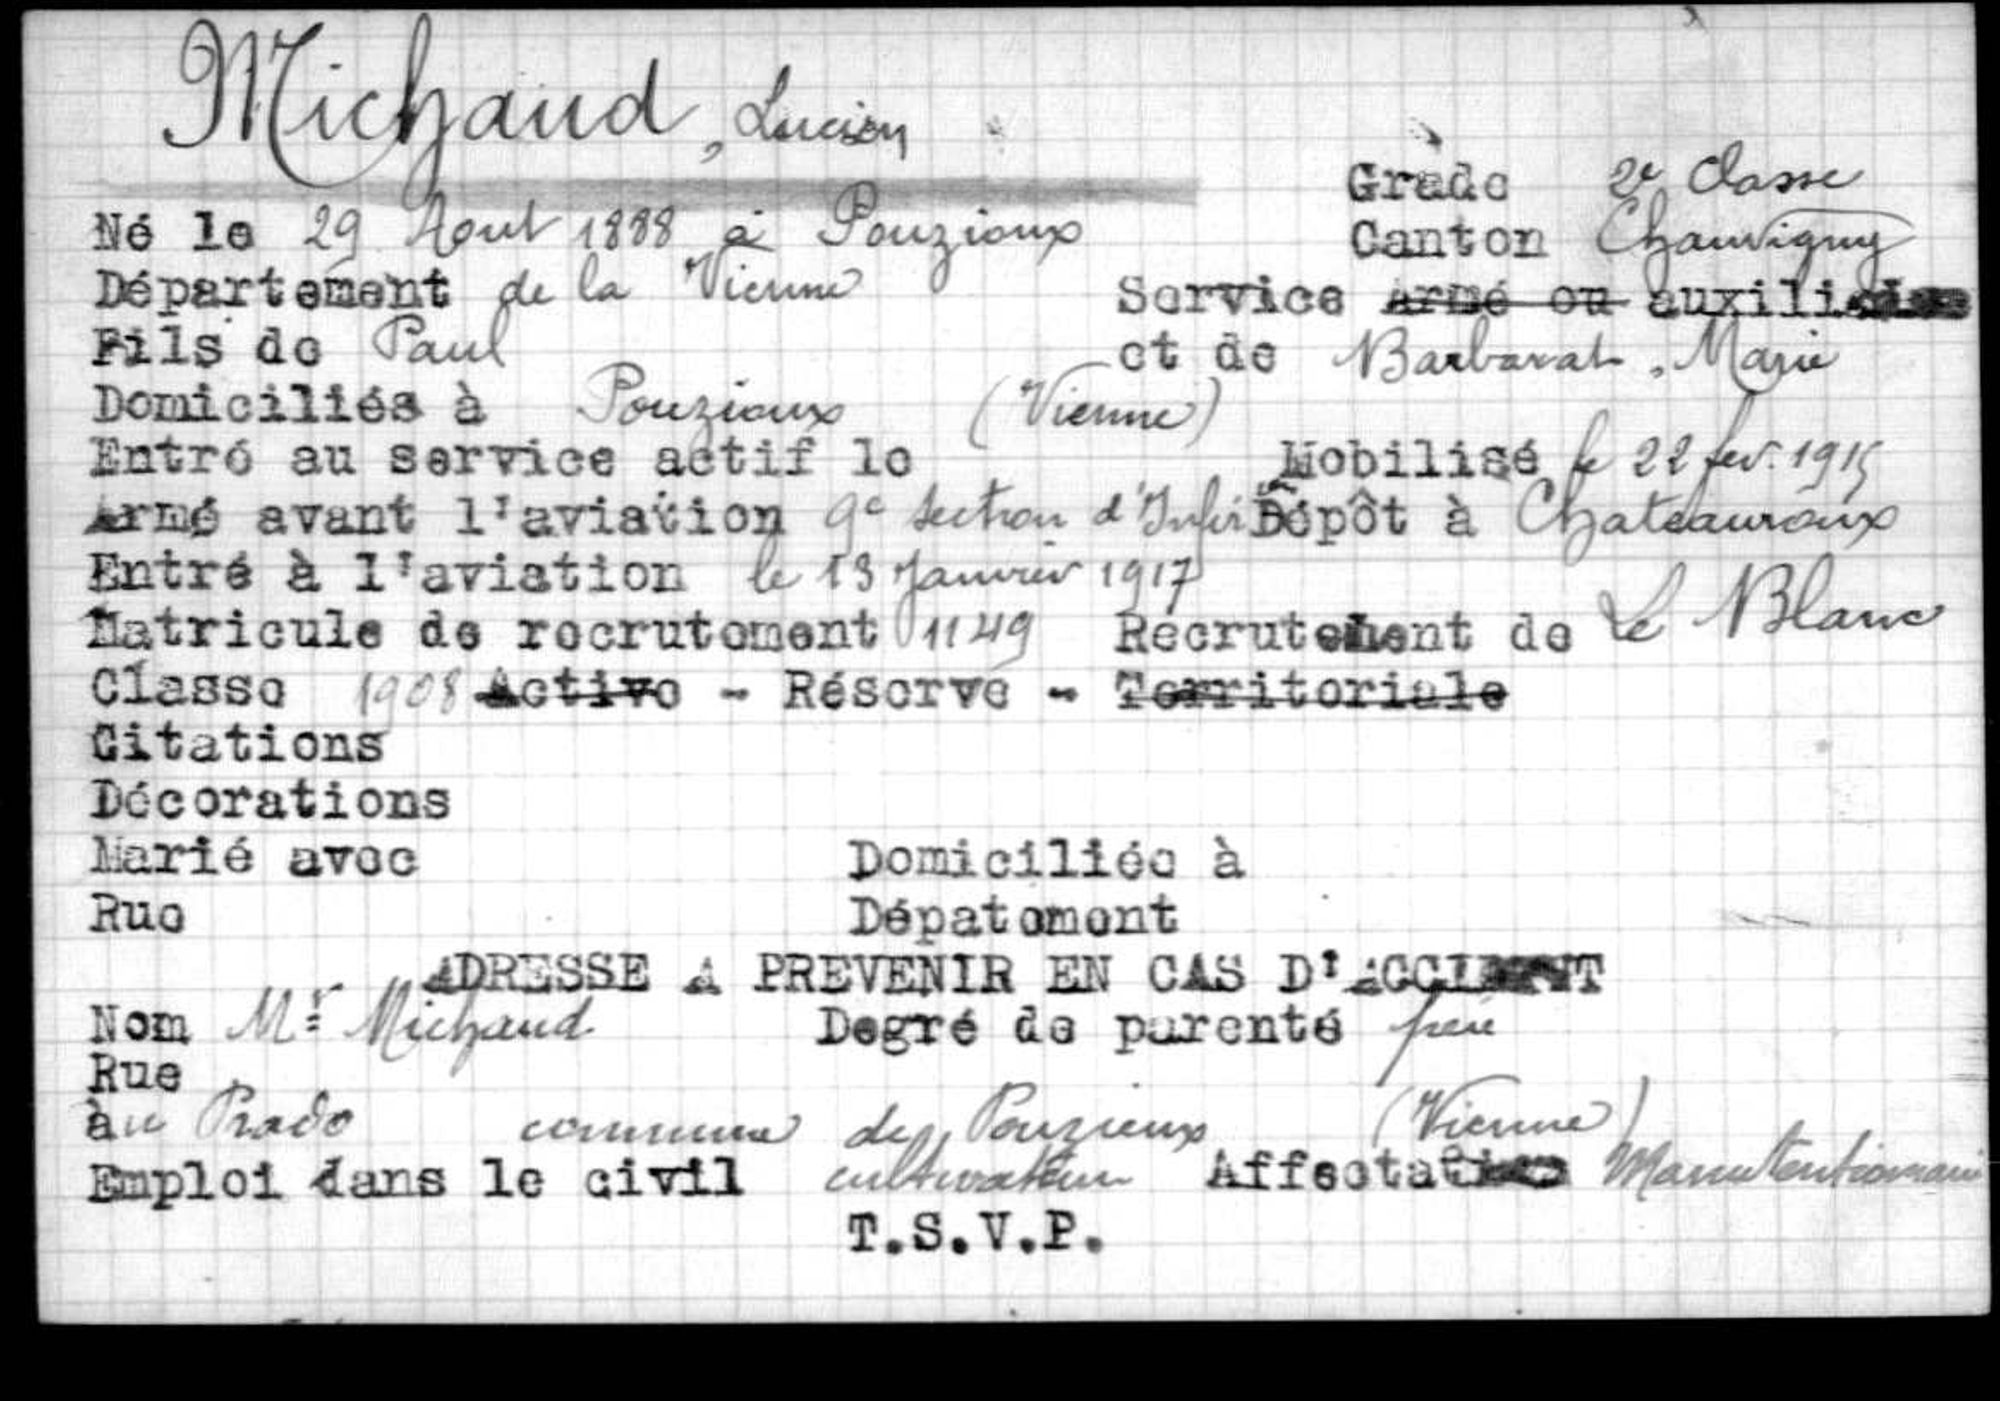 Michaud, Lucien
Grade 2e Classe
Né le 29 Aout 1888 à Pouzioux Canton Chauvigny
Département de la Vienne Service Armé ou auxiliaire
Fils de Paul et de Barbarat, Marie
Domiciliés à Pouzioux (Vienne)
Entré au service actif le Mobilisé le 22 fev. 1915
Armé avant l'aviation 9e Section d'Infir Dépôt à Chateauroux
Entré à l'aviation le 13 Janvier 1917
Matricule de recrutement 1149 Recrutement de Le Blanc
Classe 1908 Active - Réserve - Territoriale
Citations
Décorations
Marié avec Domiciliée à
Rue Dépatement
ADRESSE A PREVENIR EN CAS D'ACCIDENT
Nom Mr Michaud Degré de parenté
Rue
àu Prado commune de Pouzioux (Vienne)
Emploi dans le civil cultivateur Affectation
T.S.V.P.